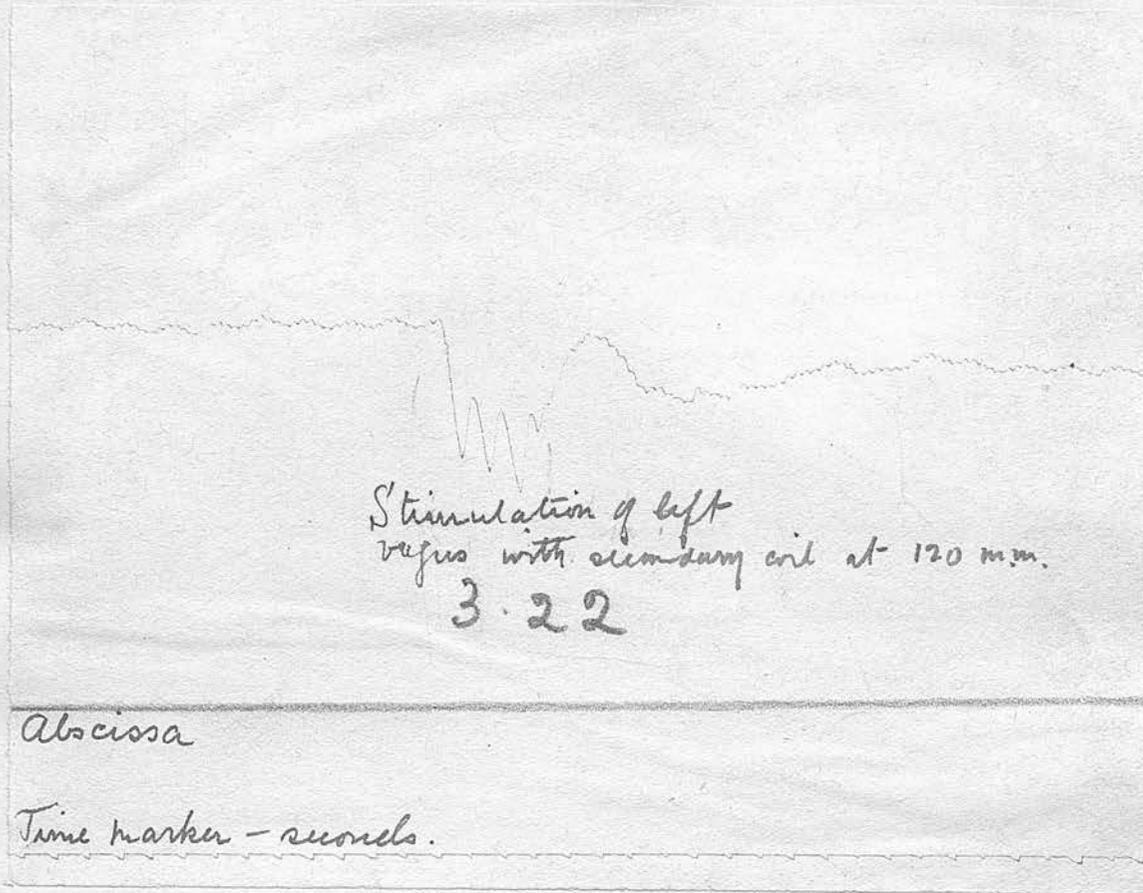 Stimulation of left
vagus with secondary coil at 120 m.m.
3.22
Abscissa
Time marker - seconds.